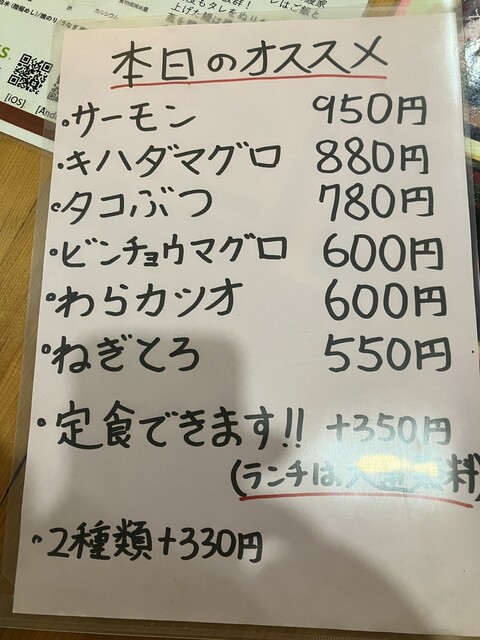 本日のオススメ
・サーモン 950円
・キハダマグロ 880円
・タコぶつ 780円
・ビンチョウマグロ 600円
・わらカツオ 600円
・ねぎとろ 550円
・定食できます!! +350円
(ランチは大盛無料
・2種類+330円
[iOS]